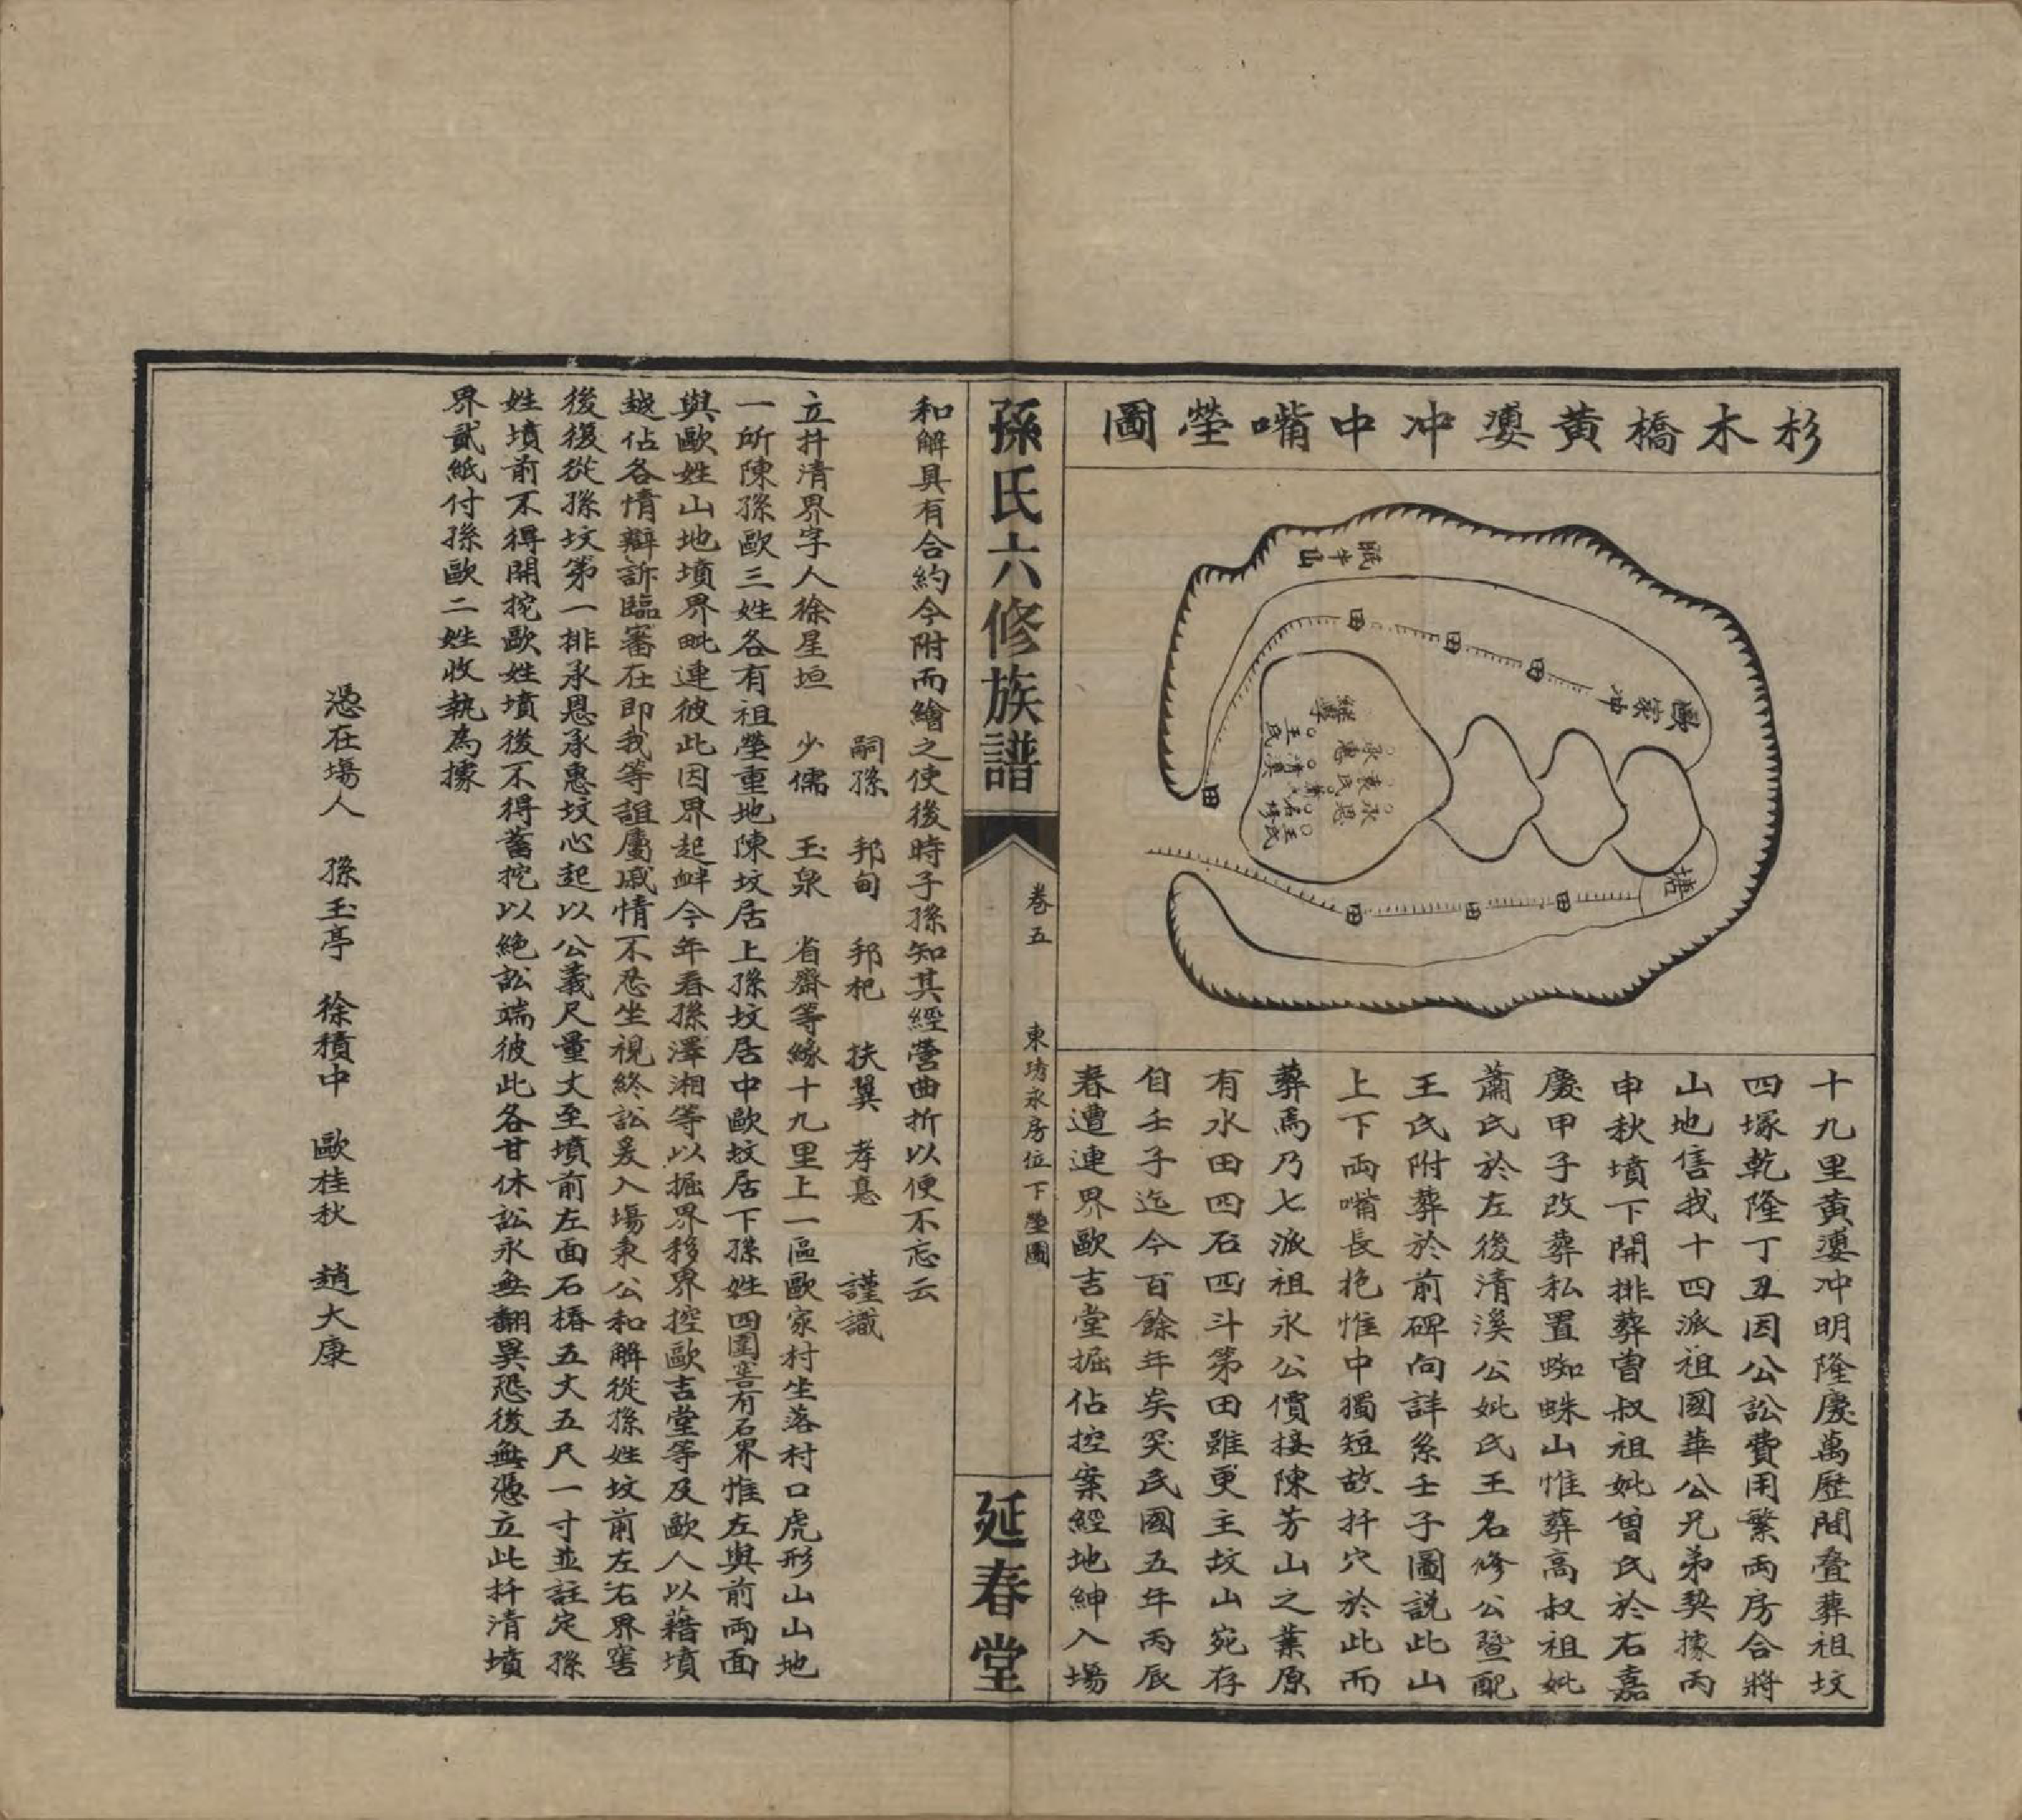 杉木橋黄㜢冲中嘴塋圖
眠牛山
田
田
田
歐家冲
田
塘
田
田
田
十九里黄㜢冲明隆慶萬歷間叠葬祖坟
四塚乾隆丁丑因公訟費用繁兩房合將
山地售我十四派祖國華公兄弟契據丙
申秋墳下開排葬曾叔祖妣曾氏於右嘉
慶甲子改葬私置蜘蛛山惟葬高叔祖妣
蕭氏於左後清溪公妣氏王名修公暨配
王氏附葬於前碑向詳系壬子圖説此山
上下兩嘴長抱惟中獨短故扦穴於此而
葬焉乃七派祖永公價接陳芳山之業原
有水田四石四斗第田雖更主坟山宛存
自壬子迄今百餘年矣突民國五年丙辰
春遭連界歐吉堂掘佔控案經地紳入場
孫氏六修族譜
卷五
東塝永房位下塋圖
延春堂
和解具有合約今附而繪之使後時子孫知其經營曲折以便不忘云
嗣孫 邦甸 邦杞 扶翼 孝惪 謹識
立扦清界字人徐星垣 少儒 玉泉 省齋等緣十九里上一區歐家村坐落村口虎形山山地
一所陳孫歐三姓各有祖塋重地陳坟居上孫坟居中歐坟居下孫姓四圍窖有石界惟左與前兩面
與歐姓山地墳界毗連彼此因界起衅今年春孫澤湘等以掘界移界控歐吉堂等及歐人以藉墳
越佔各情辯訴臨審在即我等誼屬戚情不忍坐視終訟爰入場秉公和解從孫姓坟前左右界窖
後復從孫坟第一排承恩承惠坟心起以公義尺量丈至墳前左面石樁五丈五尺一寸並註定孫
姓墳前不得開挖歐姓墳後不得蓄挖以絶訟端彼此各甘休訟永無翻異恐後無憑立此扦清墳
界貳紙付孫歐二姓收執為據
憑在塲人 孫玉亭 徐積中 歐桂秋 趙大康